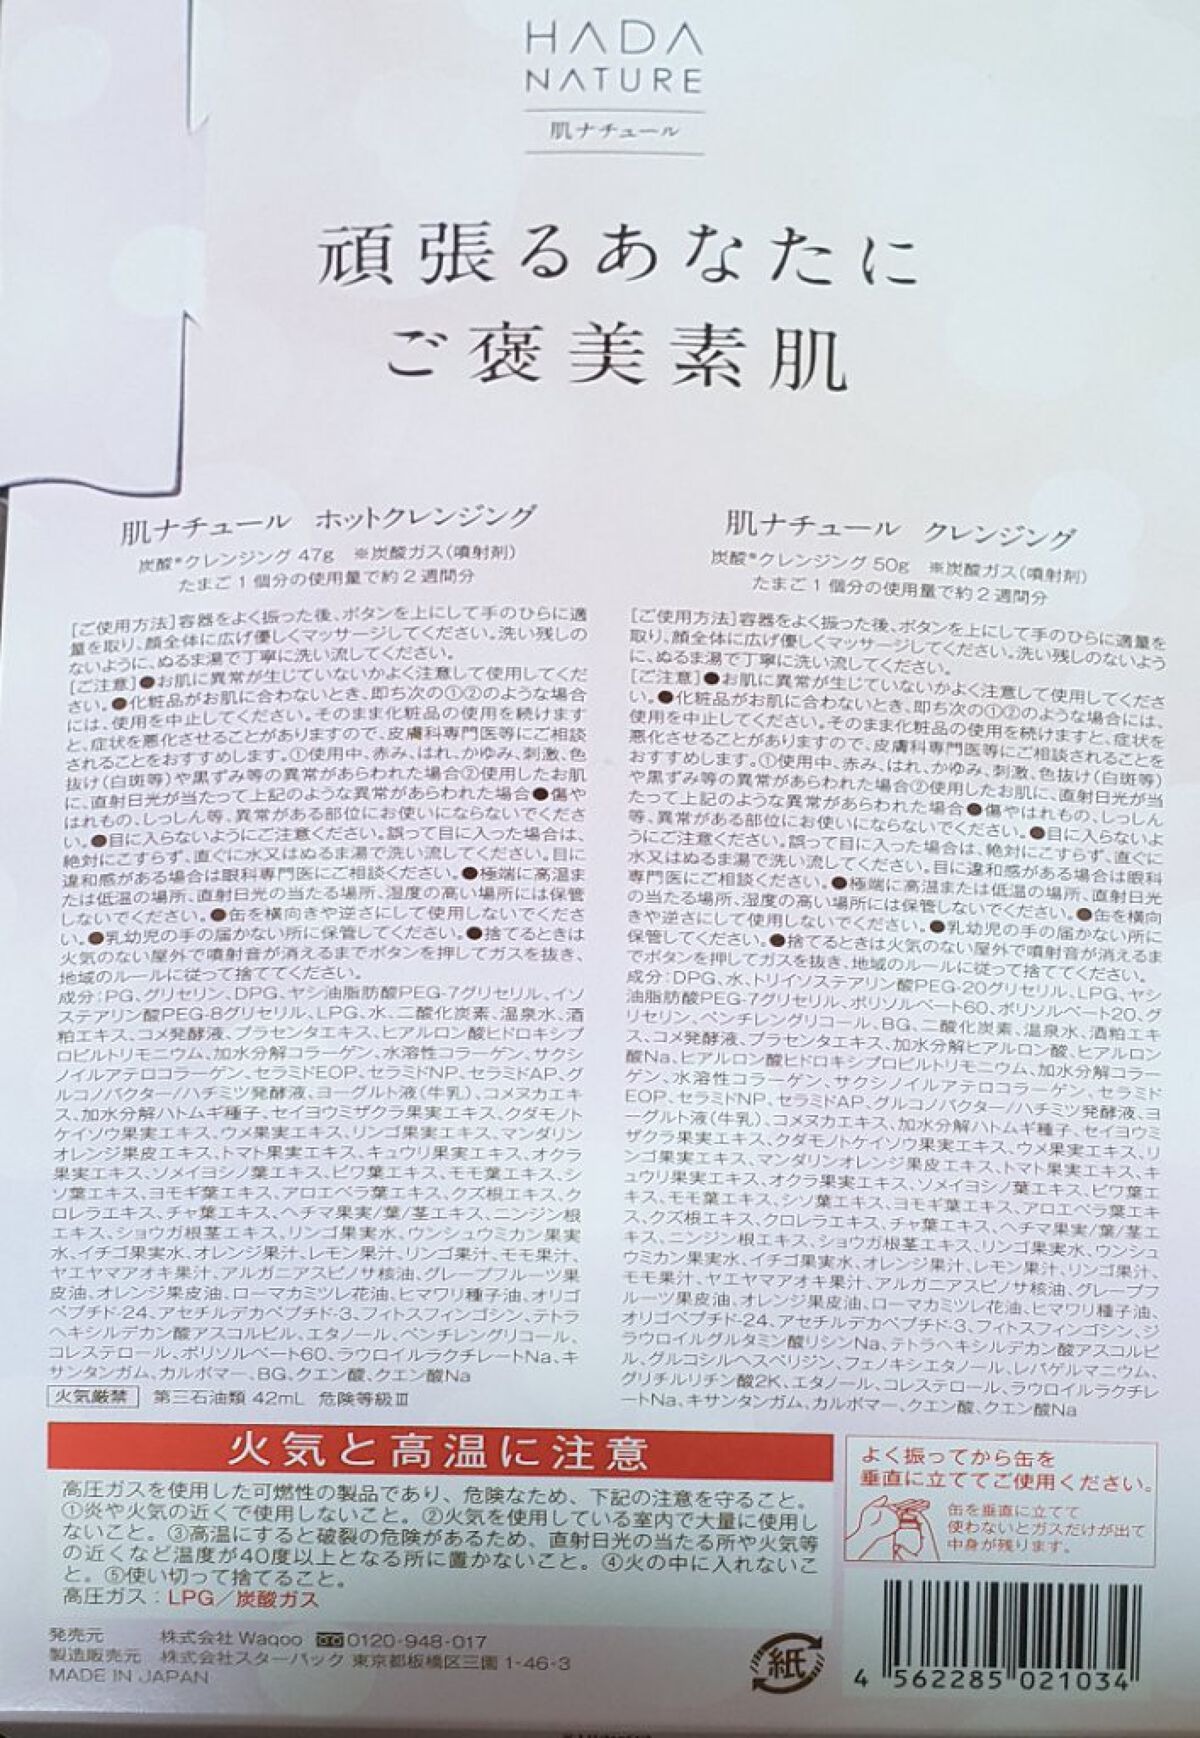 HADA
NATURE
肌ナチュール
頑張るあなたに
ご褒美素肌
肌ナチュール ホットクレンジング
炭酸※クレンジング 47g ※炭酸ガス(噴射剤)
たまご1個分の使用量で約2週間分
[ご使用方法]容器をよく振った後、ボタンを上にして手のひらに適
量を取り、顔全体に広げ優しくマッサージしてください。洗い残しの
ないように、ぬるま湯で丁寧に洗い流してください。
[ご注意]●お肌に異常が生じていないかよく注意して使用してくだ
さい。●化粧品がお肌に合わないとき、即ち次の①②のような場合
には、使用を中止してください。そのまま化粧品の使用を続けます
と、症状を悪化させることがありますので、皮膚科専門医等にご相談
されることをおすすめします。①使用中、赤み、はれ、かゆみ、刺激、色
抜け(白斑等)や黒ずみ等の異常があらわれた場合②使用したお肌
に、直射日光が当たって上記のような異常があらわれた場合●傷や
はれもの、しっしん等、異常がある部位にお使いにならないでくださ
い。●目に入らないようにご注意ください。誤って目に入った場合は、
絶対にこすらず、直ぐに水又はぬるま湯で洗い流してください。目に
違和感がある場合は眼科専門医にご相談ください。●極端に高温ま
たは低温の場所、直射日光の当たる場所、湿度の高い場所には保管
しないでください。●缶を横向きや逆さにして使用しないでくださ
い。●乳幼児の手の届かない所に保管してください。●捨てるときは
火気のない屋外で噴射音が消えるまでボタンを押してガスを抜き、
地域のルールに従って捨ててください。
成分:PG、グリセリン、DPG、ヤシ油脂肪酸PEG-7グリセリル、イソ
ステアリン酸PEG-8グリセリル、LPG、水、二酸化炭素、温泉水、酒
粕エキス、コメ発酵液、プラセンタエキス、ヒアルロン酸ヒドロキシプ
ロピルトリモニウム、加水分解コラーゲン、水溶性コラーゲン、サクシ
ノイルアテロコラーゲン、セラミドEOP、セラミドNP、セラミドAP、グ
ルコノバクター/ハチミツ発酵液、ヨーグルト液(牛乳)、コメヌカエキ
ス、加水分解ハトムギ種子、セイヨウミザクラ果実エキス、クダモノト
ケイソウ果実エキス、ウメ果実エキス、リンゴ果実エキス、マンダリン
オレンジ果皮エキス、トマト果実エキス、キュウリ果実エキス、オクラ
果実エキス、ソメイヨシノ葉エキス、ビワ葉エキス、モモ葉エキス、シ
ソ葉エキス、ヨモギ葉エキス、アロエベラ葉エキス、クズ根エキス、ク
ロレラエキス、チャ葉エキス、ヘチマ果実/葉/茎エキス、ニンジン根
エキス、ショウガ根茎エキス、リンゴ果実水、ウンシュウミカン果実
水、イチゴ果実水、オレンジ果汁、レモン果汁、リンゴ果汁、モモ果汁、
ヤエヤマアオキ果汁、アルガニアスピノサ核油、グレープフルーツ果
皮油、オレンジ果皮油、ローマカミツレ花油、ヒマワリ種子油、オリゴ
ペプチド-24、アセチルデカペプチド-3、フィトスフィンゴシン、テトラ
ヘキシルデカン酸アスコルビル、エタノール、ペンチレングリコール、
コレステロール、ポリソルベート60、ラウロイルラクチレートNa、キ
サンタンガム、カルボマー、BG、クエン酸、クエン酸Na
火気厳禁 第三石油類 42mL 危険等級Ⅲ
肌ナチュール クレンジング
炭酸※クレンジング 50g ※炭酸ガス(噴射剤)
たまご1個分の使用量で約2週間分
[ご使用方法]容器をよく振った後、ボタンを上にして手のひらに適量を
取り、顔全体に広げ優しくマッサージしてください。洗い残しのないよう
に、ぬるま湯で丁寧に洗い流してください。
[ご注意]●お肌に異常が生じていないかよく注意して使用してくださ
い。●化粧品がお肌に合わないとき、即ち次の①②のような場合には、
使用を中止してください。そのまま化粧品の使用を続けますと、症状を
悪化させることがありますので、皮膚科専門医等にご相談されることを
おすすめします。①使用中、赤み、はれ、かゆみ、刺激、色抜け(白斑等)
や黒ずみ等の異常があらわれた場合②使用したお肌に、直射日光が当
たって上記のような異常があらわれた場合●傷やはれもの、しっしん
等、異常がある部位にお使いにならないでください。●目に入らないよ
うにご注意ください。誤って目に入った場合は、絶対にこすらず、直ぐに
水又はぬるま湯で洗い流してください。目に違和感がある場合は眼科
専門医にご相談ください。●極端に高温または低温の場所、直射日光
の当たる場所、湿度の高い場所には保管しないでください。●缶を横向
きや逆さにして使用しないでください。●乳幼児の手の届かない所に
保管してください。●捨てるときは火気のない屋外で噴射音が消えるま
でボタンを押してガスを抜き、地域のルールに従って捨ててください。
成分:DPG、水、トリイソステアリン酸PEG-20グリセリル、LPG、ヤシ
油脂肪酸PEG-7グリセリル、ポリソルベート60、ポリソルベート20、グ
リセリン、ペンチレングリコール、BG、二酸化炭素、温泉水、酒粕エキ
ス、コメ発酵液、プラセンタエキス、加水分解ヒアルロン酸、ヒアルロン
酸Na、ヒアルロン酸ヒドロキシプロピルトリモニウム、加水分解コラー
ゲン、水溶性コラーゲン、サクシノイルアテロコラーゲン、セラミド
EOP、セラミドNP、セラミドAP、グルコノバクター/ハチミツ発酵液、ヨ
ーグルト液(牛乳)、コメヌカエキス、加水分解ハトムギ種子、セイヨウミ
ザクラ果実エキス、クダモノトケイソウ果実エキス、ウメ果実エキス、リ
ンゴ果実エキス、マンダリンオレンジ果皮エキス、トマト果実エキス、キ
ュウリ果実エキス、オクラ果実エキス、ソメイヨシノ葉エキス、ビワ葉エ
キス、モモ葉エキス、シソ葉エキス、ヨモギ葉エキス、アロエベラ葉エキ
ス、クズ根エキス、クロレラエキス、チャ葉エキス、ヘチマ果実/葉/茎エ
キス、ニンジン根エキス、ショウガ根茎エキス、リンゴ果実水、ウンシュ
ウミカン果実水、イチゴ果実水、オレンジ果汁、レモン果汁、リンゴ果汁、
モモ果汁、ヤエヤマアオキ果汁、アルガニアスピノサ核油、グレープフ
ルーツ果皮油、オレンジ果皮油、ローマカミツレ花油、ヒマワリ種子油、
オリゴペプチド-24、アセチルデカペプチド-3、フィトスフィンゴシン、ジ
ラウロイルグルタミン酸リシンNa、テトラヘキシルデカン酸アスコルビ
ル、グルコシルヘスペリジン、フェノキシエタノール、レパゲルマニウム、
グリチルリチン酸2K、エタノール、コレステロール、ラウロイルラクチレ
ートNa、キサンタンガム、カルボマー、クエン酸、クエン酸Na
火気と高温に注意
高圧ガスを使用した可燃性の製品であり、危険なため、下記の注意を守ること。
①炎や火気の近くで使用しないこと。②火気を使用している室内で大量に使用し
ないこと。③高温にすると破裂の危険があるため、直射日光の当たる所や火気等
の近くなど温度が40度以上となる所に置かないこと。④火の中に入れないこ
と。⑤使い切って捨てること。
高圧ガス:LPG/炭酸ガス
よく振ってから缶を
垂直に立ててご使用ください。
缶を垂直に立てて
使わないとガスだけが出て
中身が残ります。
発売元 株式会社 Waqoo 0120-948-017
製造販売元 株式会社スターパック 東京都板橋区三園 1-46-3
MADE IN JAPAN
紙
4 562285 021034